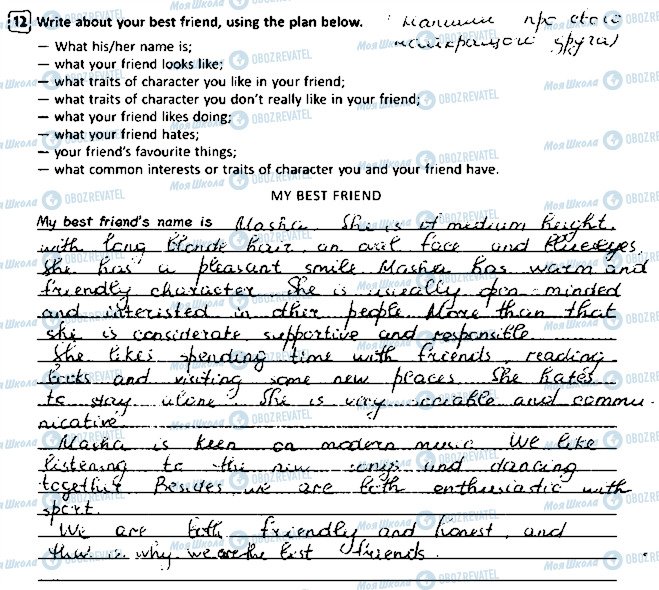 12 Write about your best friend, using the plan below.
напиши про свого
найкращого друга)
— What his/her name is;
— what your friend looks like;
— what traits of character you like in your friend;
— what traits of character you don't really like in your friend;
— what your friend likes doing;
— what your friend hates;
— your friend's favourite things;
— what common interests or traits of character you and your friend have.
MY BEST FRIEND
My best friend's name is Masha She is of medium height,
with long blonde hair an oval face and blue eyes.
She has a pleasant smile. Masha has warm and
friendly character. She is usually open-minded
and interisted in other people. More than that
she is considerate, supportive and responsible.
She likes spending time with friends, reading
books and visiting some new places. She hates
to stay alone. She is very sociable and commu-
nicative.
Masha is keen on modern music. We like
listening to the new songs and dancing
together. Besides we are both enthusiastic with
sport.
We are both friendly and honest, and
that is why we are the best friends.
Моя Школа OBOZREVATEL